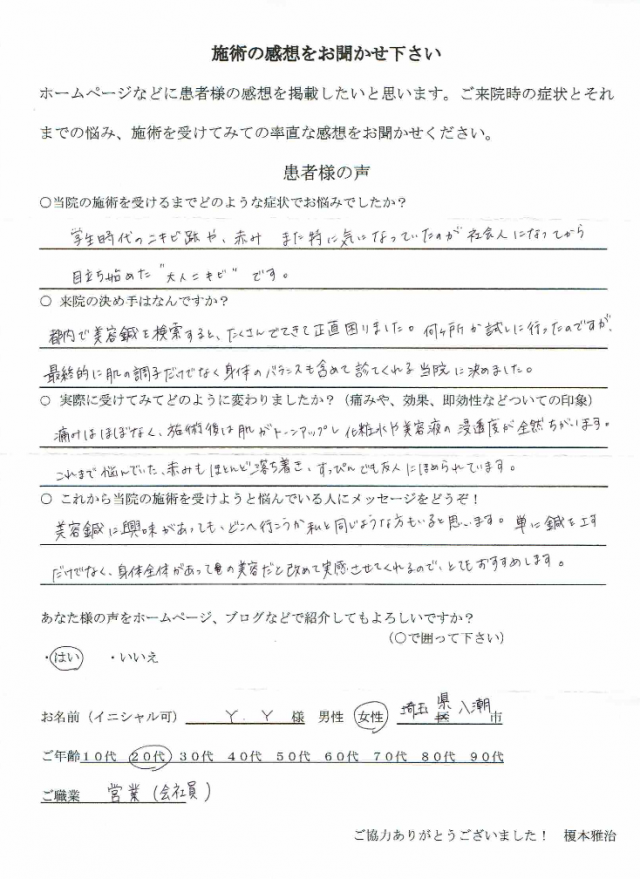 施術の感想をお聞かせ下さい
ホームページなどに患者様の感想を掲載したいと思います。ご来院時の症状とそれ
までの悩み、施術を受けてみての率直な感想をお聞かせください。
患者様の声
○当院の施術を受けるまでどのような症状でお悩みでしたか？
学生時代のニキビ跡や、赤み また特に気になっていたのが社会人になってから
目立ち始めた"大人ニキビ"です。
○ 来院の決め手はなんですか？
都内で美容鍼を検索すると、たくさんでてきて正直困りました。何ヶ所か試しに行ったのですが、
最終的に肌の調子だけでなく身体のバランスも含めて診てくれる当院に決めました。
○ 実際に受けてみてどのように変わりましたか？（痛みや、効果、即効性などついての印象）
痛みはほぼなく、施術後は肌がトーンアップし化粧水や美容液の浸透度が全然ちがいます。
これまで悩んでいた、赤みもほとんど落ち着き、すっぴんでも友人にほめられています。
○ これから当院の施術を受けようと悩んでいる人にメッセージをどうぞ！
美容鍼に興味があっても、どこへ行こうか私と同じような方もいると思います。単に鍼を
だけでなく、身体全体があっての美容だと改めて実感させてくれるので、とてもおすすめします。
あなた様の声をホームページ、ブログなどで紹介してもよろしいですか？
（○で囲って下さい）
・はい ・いいえ
お名前（イニシャル可） Y.Y 様 男性 女性 埼玉 県 八潮 市
ご年齢 10代 20代 30代 40代 50代 60代 70代 80代 90代
ご職業 営業（会社員）
ご協力ありがとうございました！ 榎本雅治